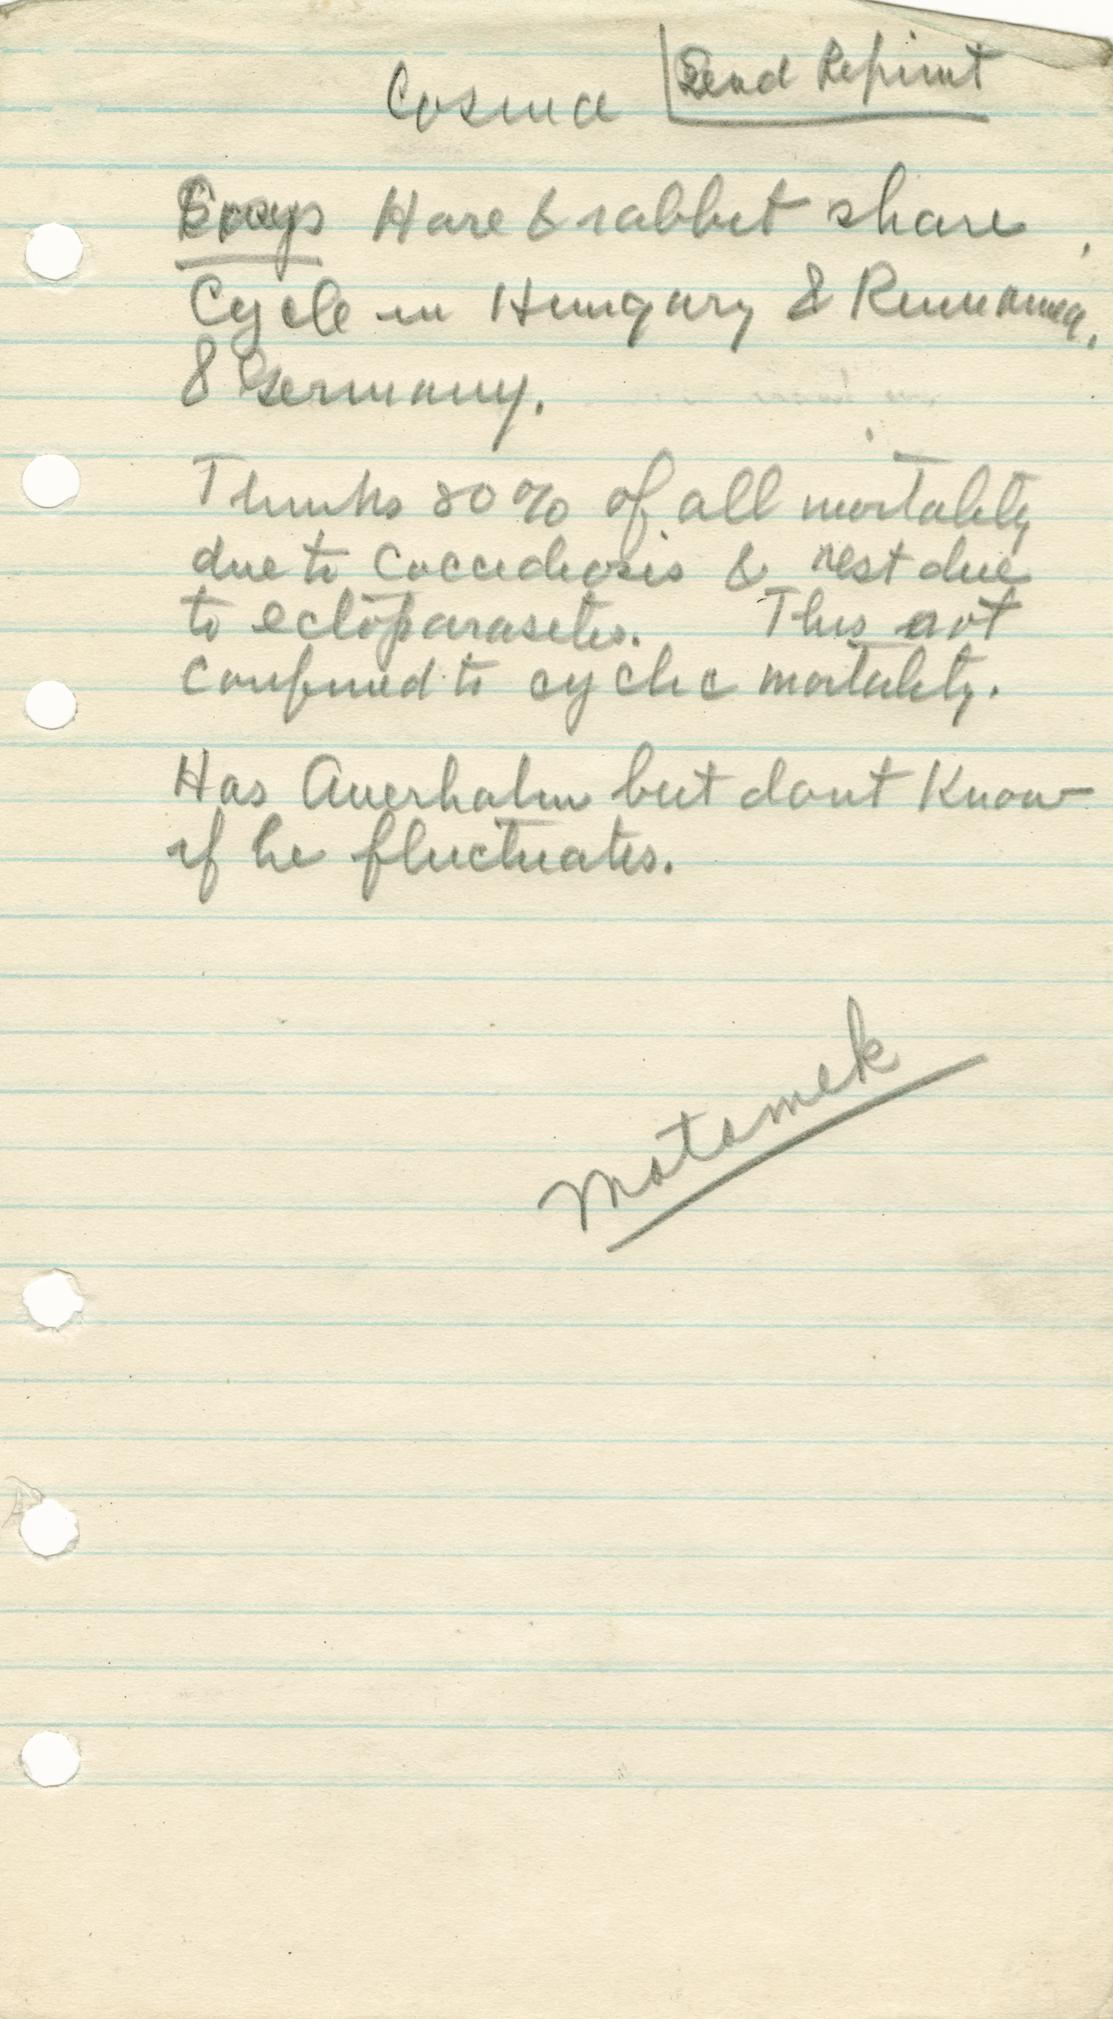 Cosma Send Reprint
Says Hare & rabbit share
Cycle in Hungary & Rumania,
& Germany.
Thinks 80% of all mortality
due to Coccidiosis & rest due
to ectoparasites. This not
confined to cyclic mortality.
Has Auerhahn but dont Know
if he fluctuates.
Matamek